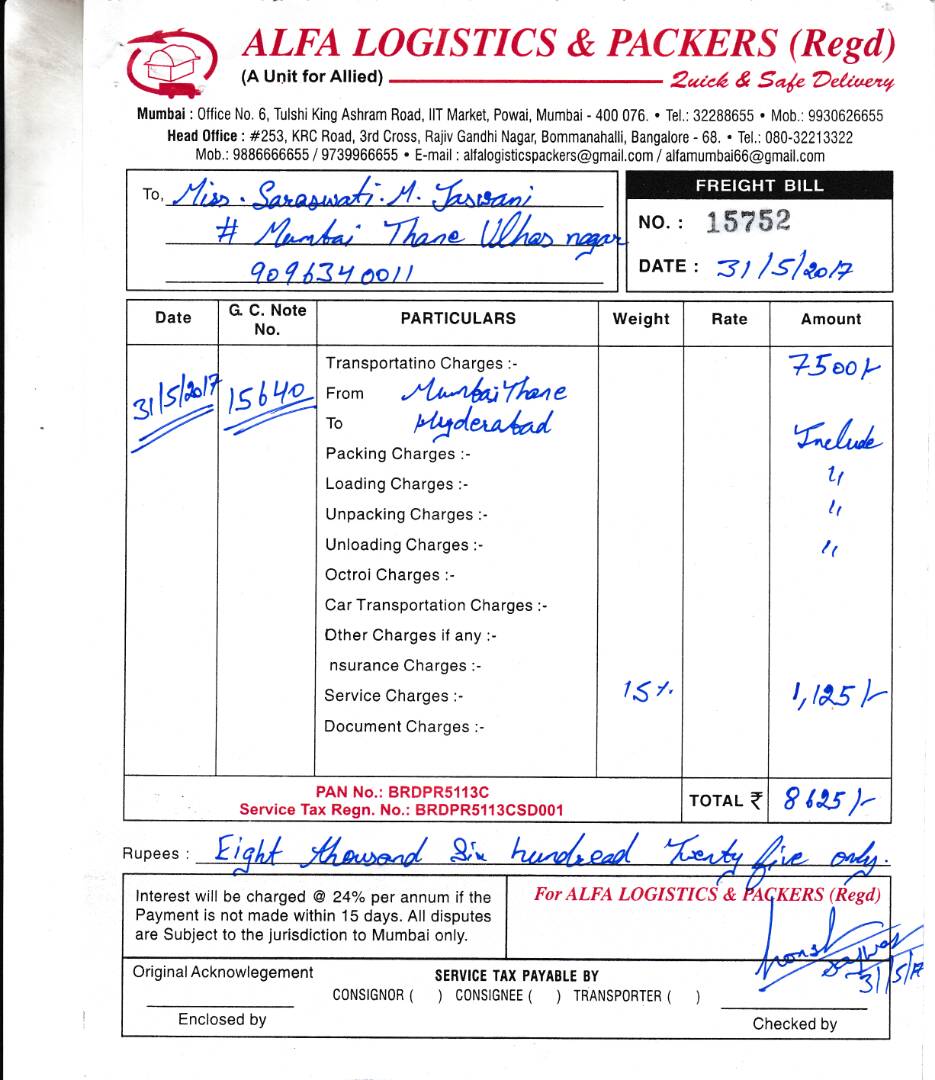 ALFA LOGISTICS & PACKERS (Regd)
(A Unit for Allied)
Quick & Safe Delivery
Mumbai : Office No. 6, Tulshi King Ashram Road, IIT Market, Powai, Mumbai - 400 076. • Tel.: 32288655 • Mob.: 9930626655
Head Office : #253, KRC Road, 3rd Cross, Rajiv Gandhi Nagar, Bommanahalli, Bangalore - 68. • Tel.: 080-32213322
Mob.: 9886666655 / 9739966655 • E-mail : alfalogisticspackers@gmail.com / alfamumbai66@gmail.com
To, Miss. Saraswati. M. Jaswani
# Mumbai Thane Ulhas nagar
9096340011
FREIGHT BILL
NO. : 15752
DATE : 31/5/2017
Date G. C. Note No. PARTICULARS Weight Rate Amount
Transportatino Charges :- 7500/-
31/5/2017 15640 From Mumbai Thane
To Hyderabad
Packing Charges :- Include
Loading Charges :- "
Unpacking Charges :- "
Unloading Charges :- "
Octroi Charges :-
Car Transportation Charges :-
Other Charges if any :-
nsurance Charges :-
Service Charges :- 15% 1,125/-
Document Charges :-
PAN No.: BRDPR5113C
Service Tax Regn. No.: BRDPR5113CSD001
TOTAL ₹ 8625/-
Rupees : Eight thousand Six hundread Twenty five only.
Interest will be charged @ 24% per annum if the
Payment is not made within 15 days. All disputes
are Subject to the jurisdiction to Mumbai only.
For ALFA LOGISTICS & PACKERS (Regd)
31/5/17
Original Acknowlegement
SERVICE TAX PAYABLE BY
CONSIGNOR ( ) CONSIGNEE ( ) TRANSPORTER ( )
Enclosed by
Checked by